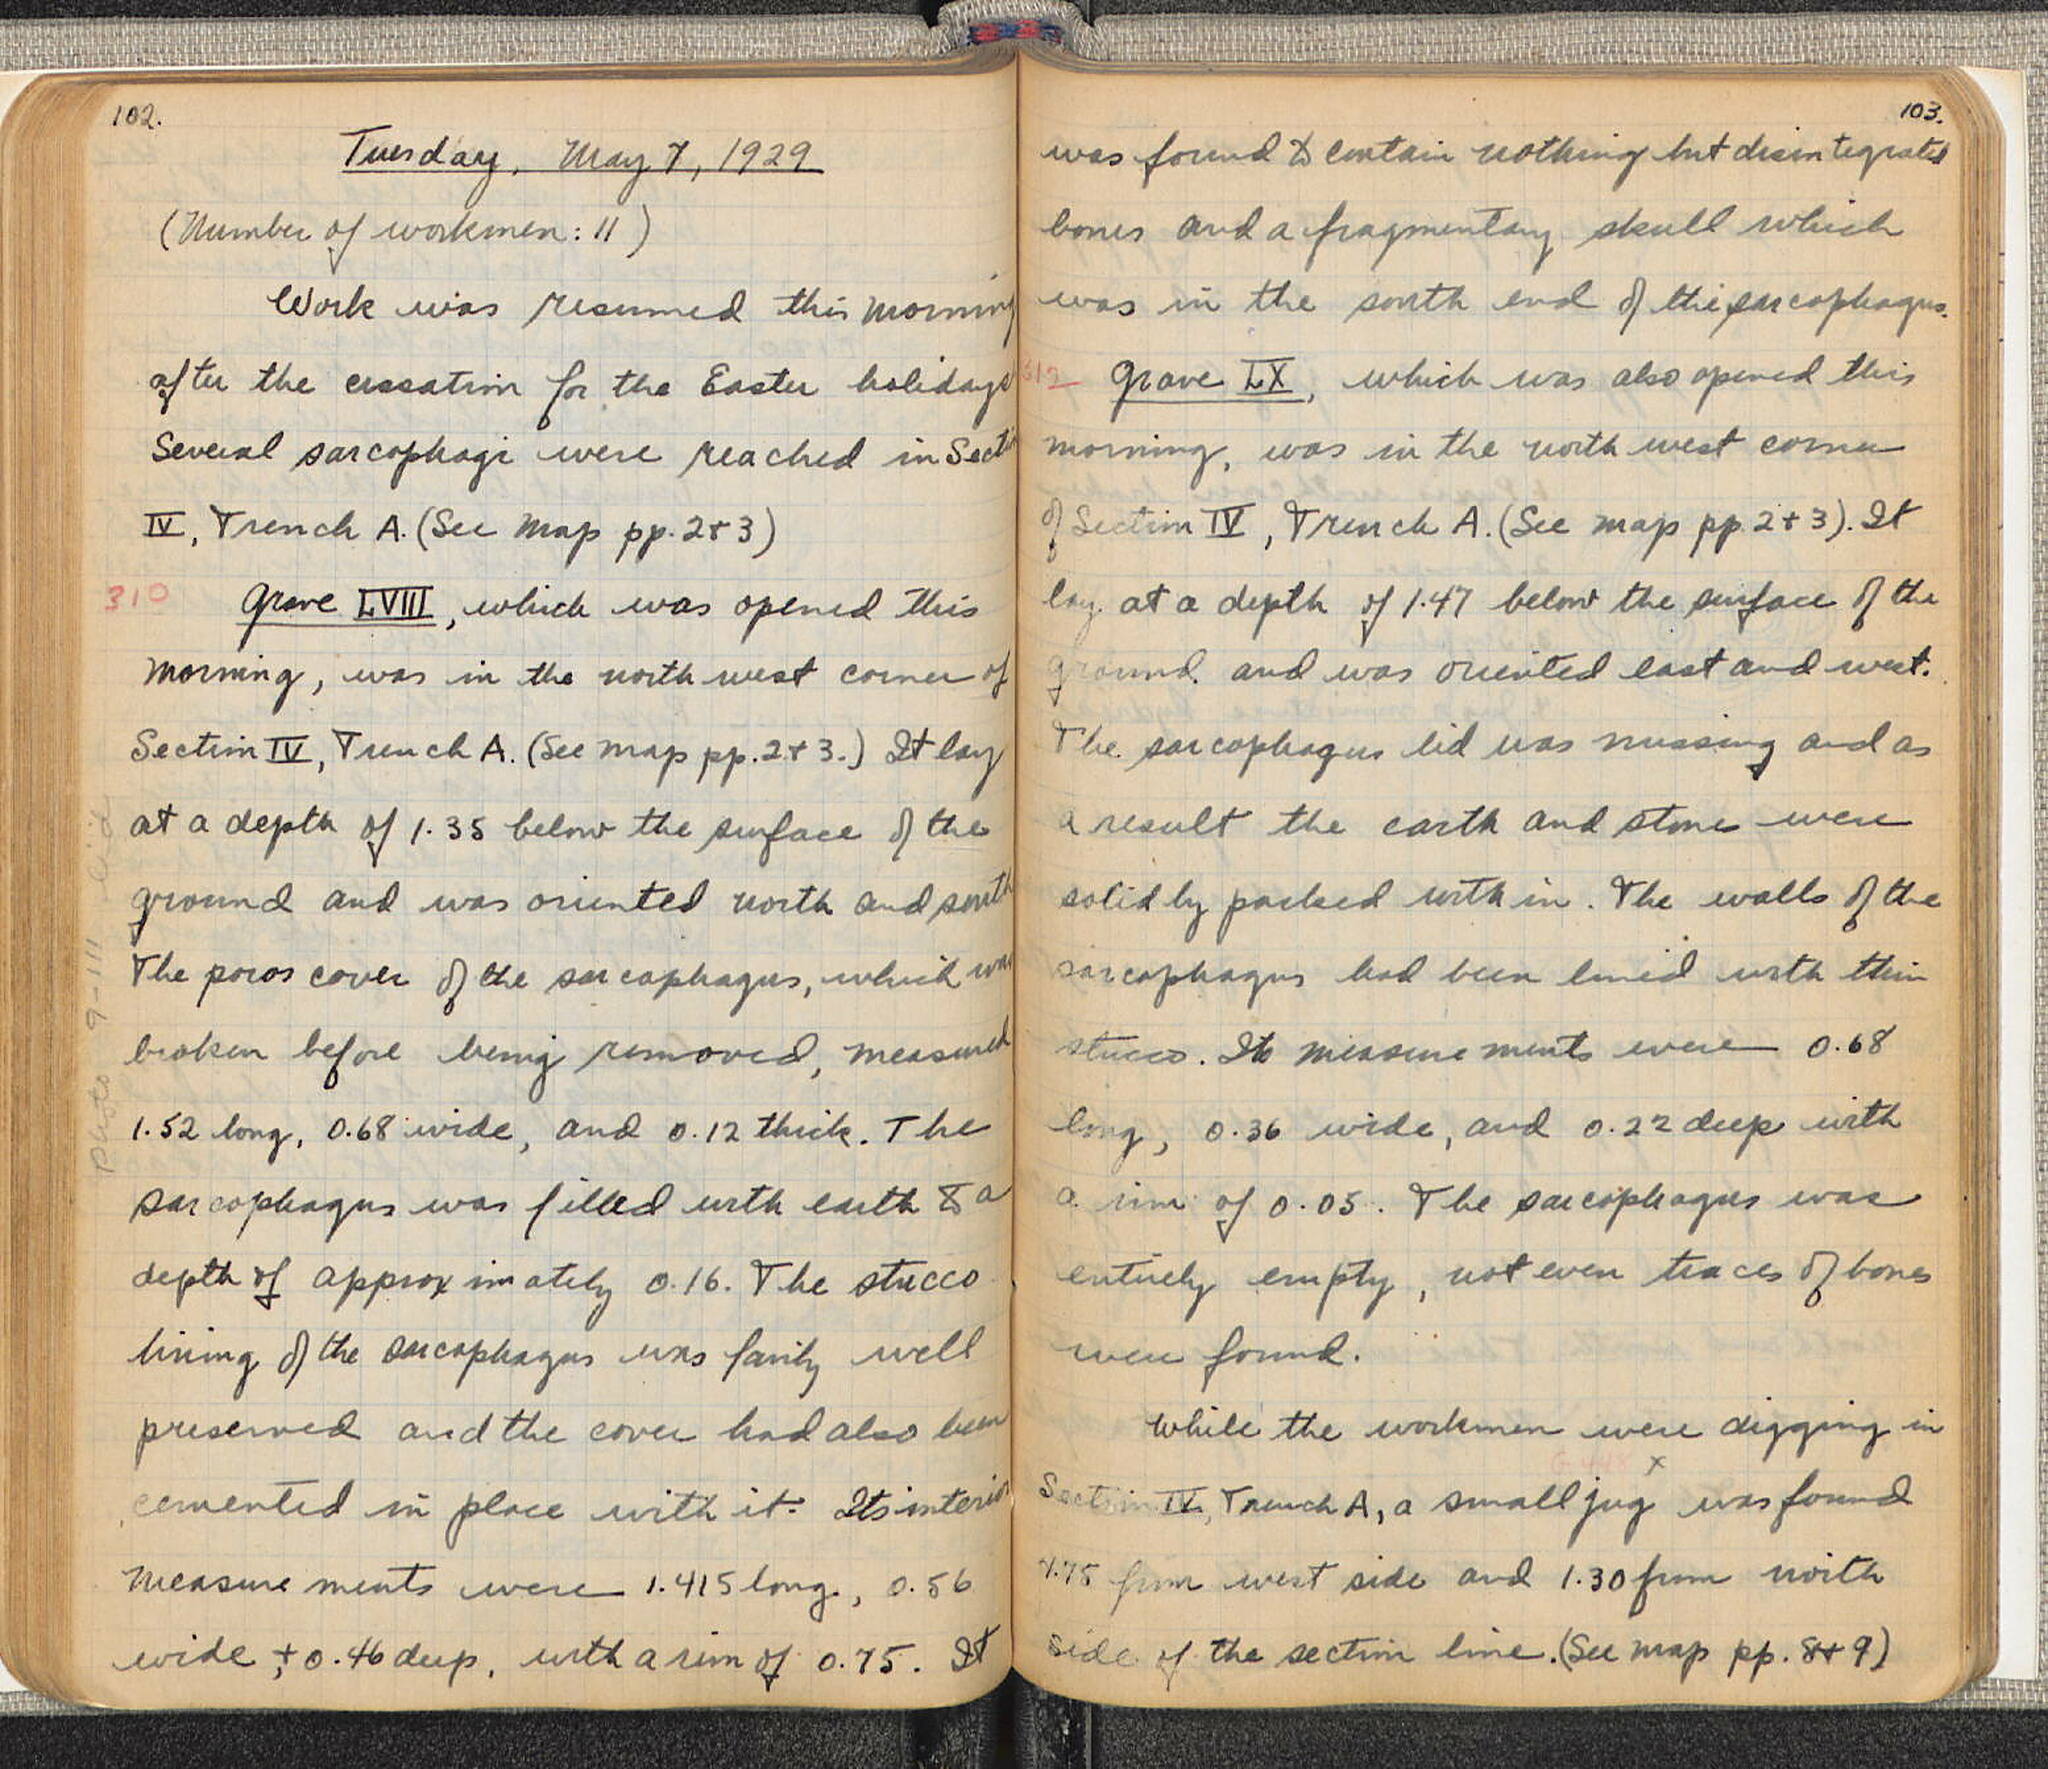 102.
Tuesday, May 7, 1929
(Number of workmen: 11)
Work was resumed this morning
after the cessation for the Easter holidays
Several sarcophagi were reached in Section
IV, Trench A. (See map pp. 2 + 3)
310
Grave LVIII, which was opened this
morning, was in the north west corner of
Section IV, Trench A. (See map pp. 2 + 3.) It lay
at a depth of 1.35 below the surface of the
ground and was oriented north and south
The poros cover of the sarcophagus, which was
broken before being removed, measured
1.52 long, 0.68 wide, and 0.12 thick. The
sarcophagus was filled with earth to a
depth of approximately 0.16. The stucco
lining of the sarcophagus was fairly well
preserved and the cover had also been
cemented in place with it. Its interior
measurements were 1.415 long, 0.56
wide + 0.46 deep, with a rim of 0.75. It
Photo 9-111
103.
was found to contain nothing but disintegrated
bones and a fragmentary skull which
was in the south end of the sarcophagus.
312
Grave LX, which was also opened this
morning, was in the north west corner
of Section IV, Trench A. (See map pp. 2 + 3). It
lay at a depth of 1.47 below the surface of the
ground and was oriented east and west.
The sarcophagus lid was missing and as
a result the earth and stones were
solidly packed within. The walls of the
sarcophagus had been lined with thin
stucco. Its measurements were 0.68
long, 0.36 wide, and 0.22 deep with
a rim of 0.05. The sarcophagus was
entirely empty, not even traces of bones
were found.
While the workmen were digging in
x
Section IV, Trench A, a small jug was found
4.75 from west side and 1.30 from north
side of the section line. (See map pp. 8 + 9)